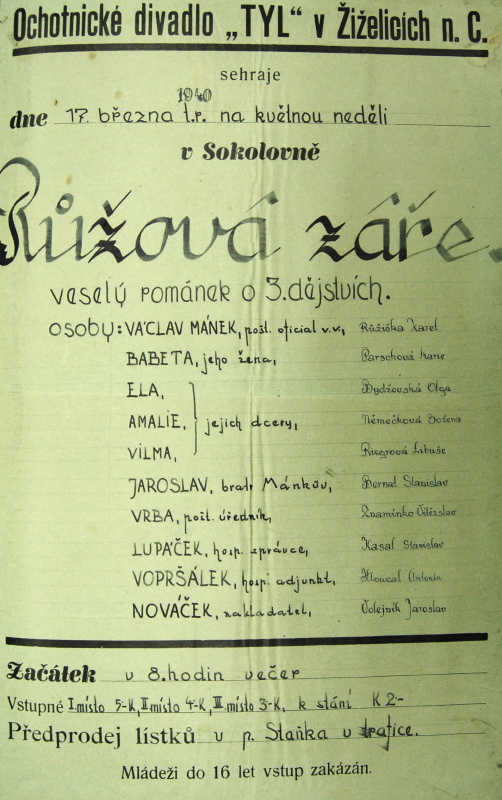 Ochotnické divadlo „TYL" v Žiželicích n. C.
sehraje
1940
dne 17. března t.r. na květnou neděli
v Sokolovně
Růžová záře.
veselý románek o 3. dějstvích.
osoby: VÁCLAV MÁNEK, pošt. oficial v.v., Růžička Karel
BABETA, jeho žena, Parschová Marie
ELA, Bydžovská Olga
AMALIE, jejich dcery, Němečková Božena
VILMA, Riegrová Libuše
JAROSLAV, bratr Mánkův, Bernat Stanislav
VRBA, pošt. úředník, Znaminko Vítězslav
LUPÁČEK, hosp. správce, Kasal Stanislav
VOPRŠÁLEK, hosp. adjunkt, Kloucal Antonín
NOVÁČEK, nakladatel, Volejník Jaroslav
Začátek v 8. hodin večer
Vstupné I. místo 5-K, II. místo 4-K, III. místo 3-K, k stání K 2-
Předprodej lístků u p. Staňka v trafice.
Mládeži do 16 let vstup zakázán.